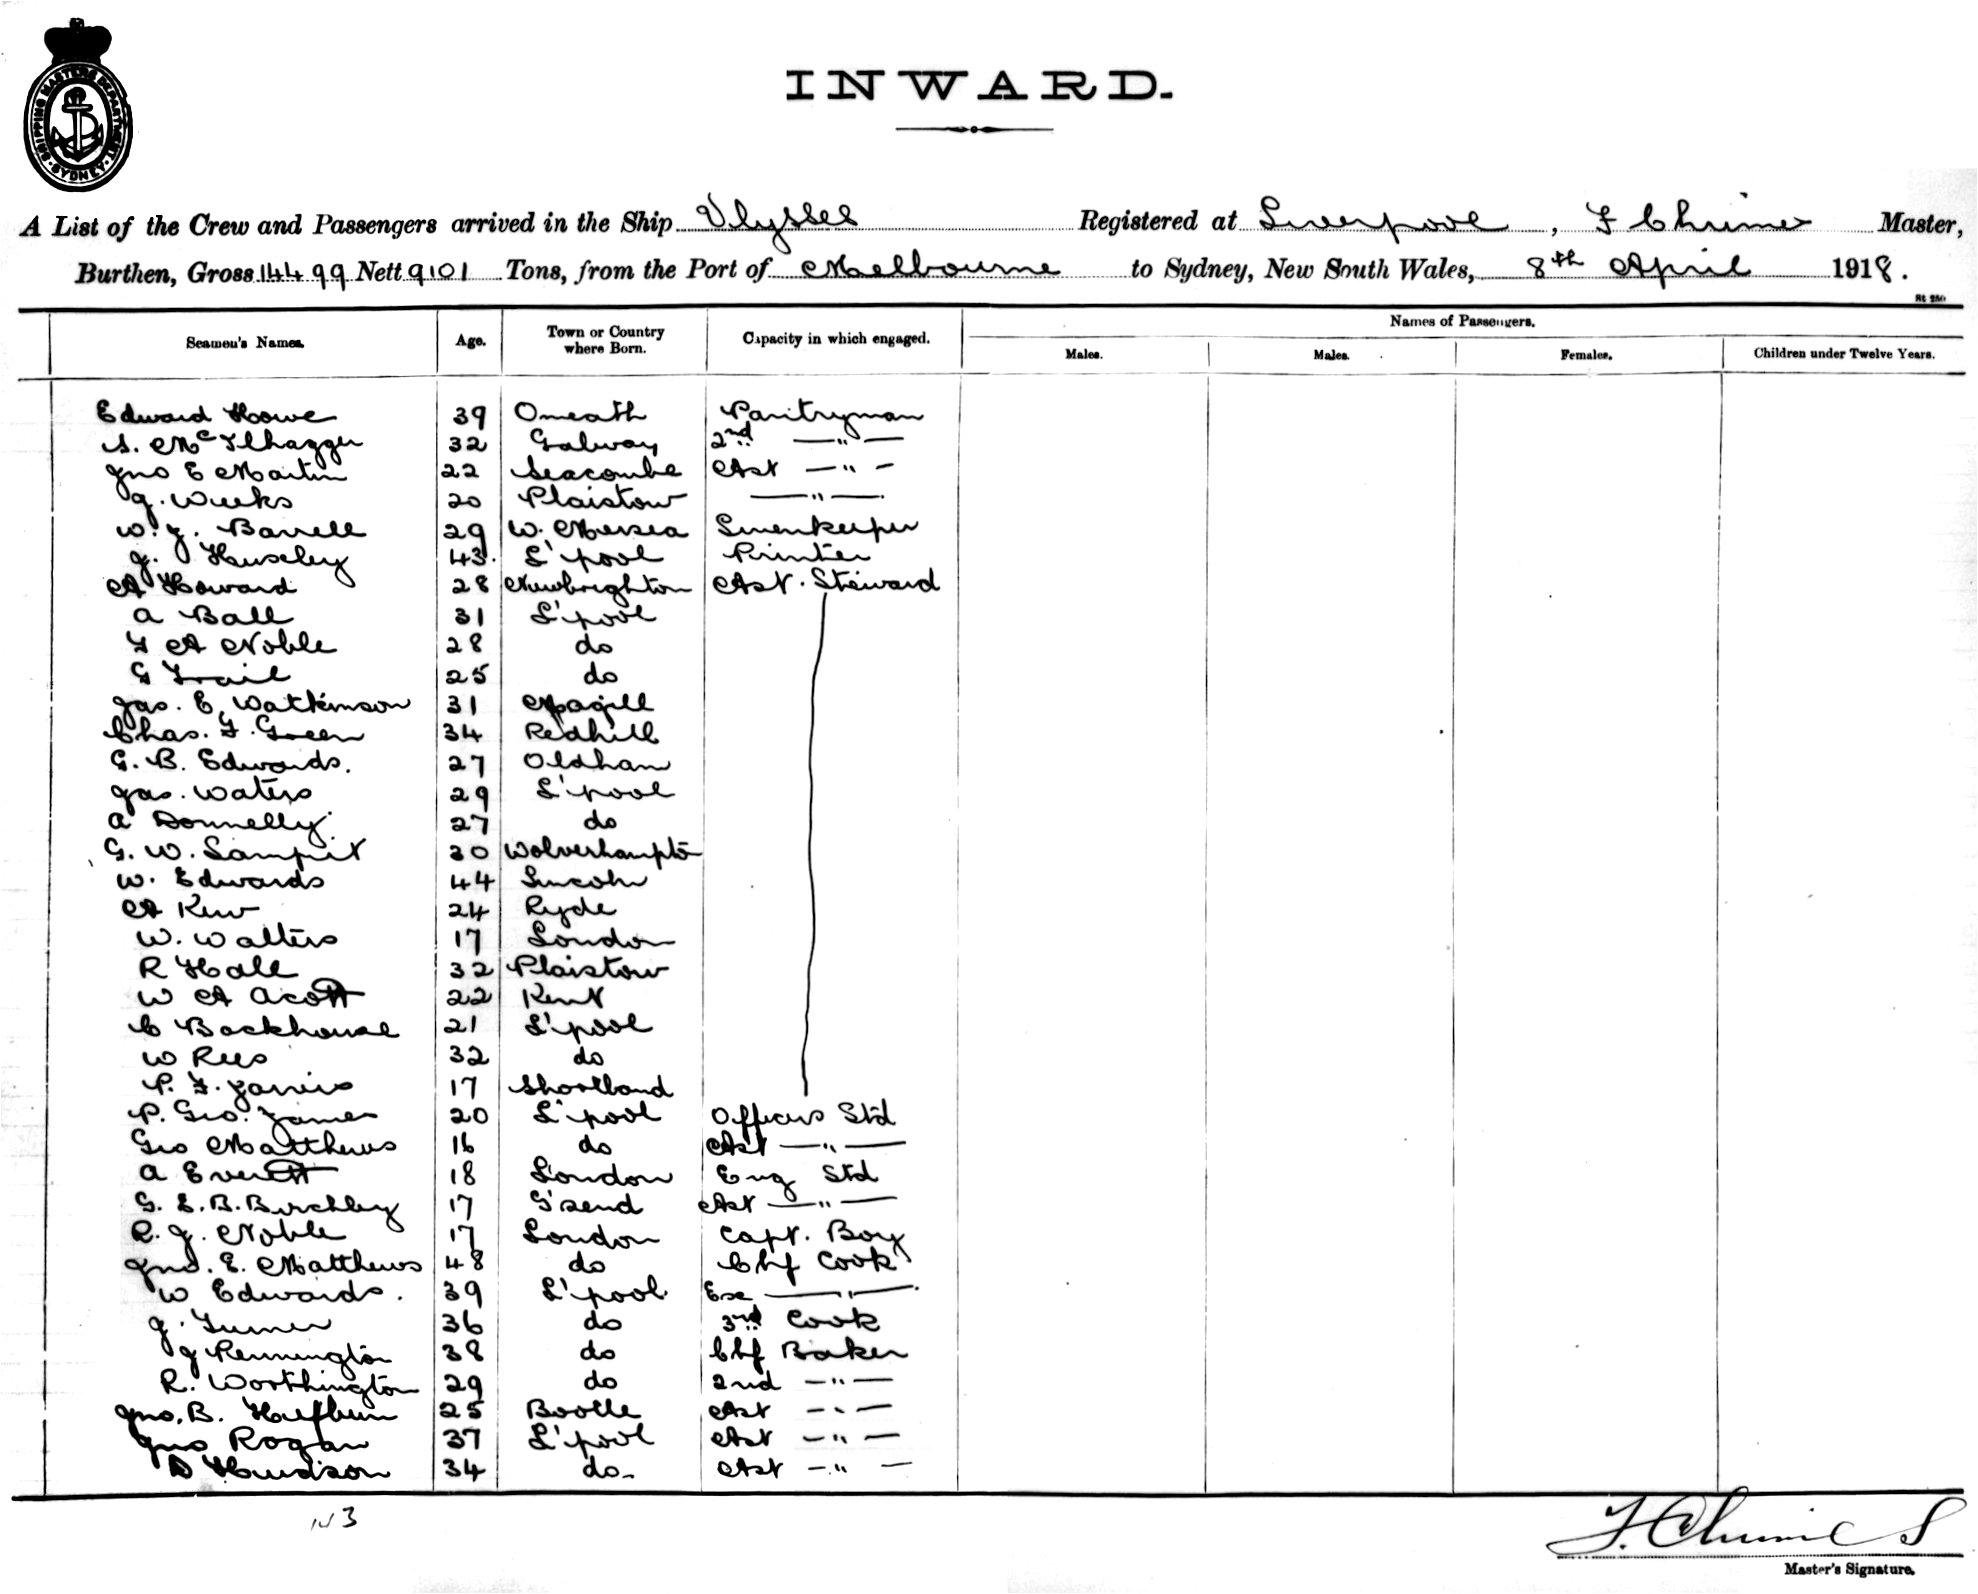 SHIPPING MASTERS DEPARTMENT · SYDNEY ·
INWARD.
A List of the Crew and Passengers arrived in the Ship Ulysses Registered at Liverpool, F Chrimes Master,
Burthen, Gross 14499 Nett 9101 Tons, from the Port of Melbourne to Sydney, New South Wales, 8th April 1918.
Seamen's Names. Age. Town or Country where Born. Capacity in which engaged. Names of Passengers.
Males. Males. Females. Children under Twelve Years.
Edward Howe 39 Omeath Pantryman
S. McIlhagger 32 Galway 2nd —"—
Jno E Martin 22 Seacombe Ast —"—
J. Weeks 20 Plaistow —"—
W. J. Barrell 29 W. Mersea Linenkeeper
J. Huseley 43. L'pool Printer
A Howard 28 Newbrighton Ast. Steward
A Ball 31 L'pool
F A Noble 28 do
G Trail 25 do
Jas. E. Watkinson 31 Magill
Chas. F. Green 34 Redhill
G. B. Edwards. 27 Oldham
Jas. Waters 29 L'pool
A Donnelly 27 do
G. W. Sampit 30 Wolverhampto
W. Edwards 44 Lincoln
A Kew 24 Ryde
W. Walters 17 London
R Hall 32 Plaistow
W A Acott 22 Kent
C Backhouse 21 L'pool
W Rees 32 do
P. F. Jarvis 17 Shortland
P. Geo. James 20 L'pool Officers Std
Geo Matthews 16 do Ast —"—
A Everett 18 London Eng Std
G. E. B. Birchley 17 G'send Ast —"—
R. J. Noble 17 London Capt. Boy
Jno. E. Matthews 48 do Chf Cook
W Edwards. 39 L'pool —"—
J. Turner 36 do 3rd Cook
J Pennington 38 do Chf Baker
R. Worthington 29 do 2nd —"—
Jno. B. 25 Bootle Ast —"—
Jno Rogan 37 L'pool Ast —"—
D Hudson 34 do- Ast —"—
F. Chrimes
Master's Signature.